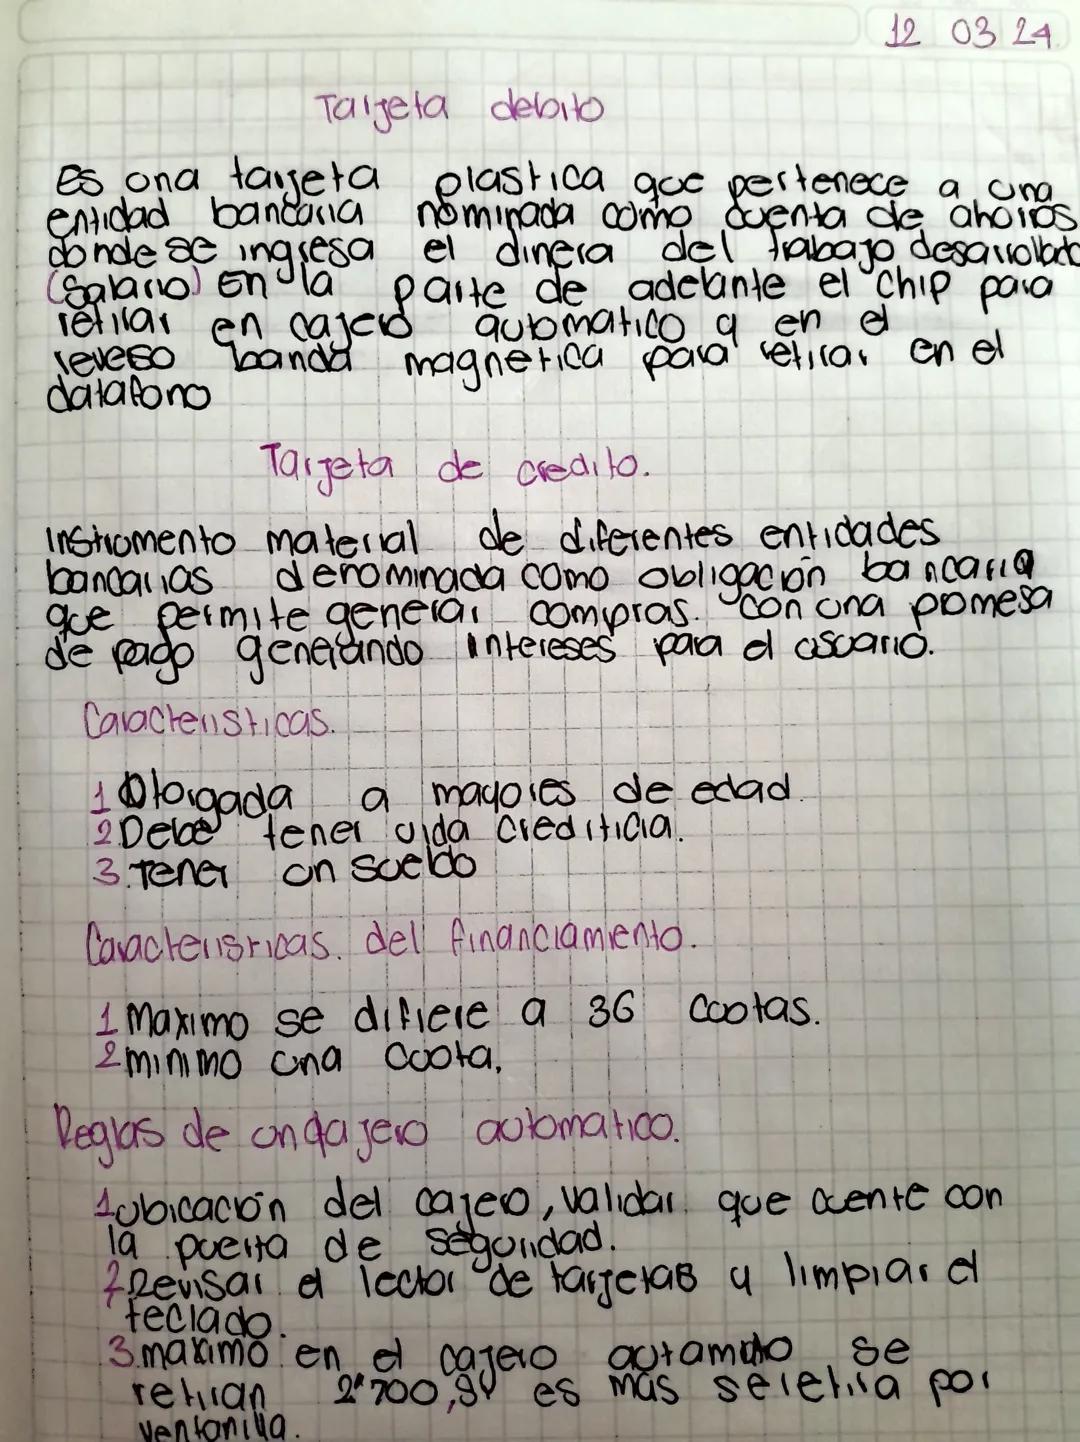 12 03 24
Tarjeta debito
Es una tarjeta plastica que pertenece a una
entidad bancaria nominada como cuenta de ahorros
donde se ingresa el dinero del trabajo desarrollado
(Salario) En la parte de adelante el chip para
retirar en cajero automatico y en el
reveso banda magnetica para retirar en el
datafono
Tarjeta de credito.
Instrumento material de diferentes entidades
bancarias denominada como obligación bancaria
que permite generar compras. con una promesa
de pago generando intereses para el usuario.
Caracteristicas.
1 Otorgada a mayores de edad.
2 Debe tener vida crediticia.
3. Tener un sueldo
Caracteristicas. del financiamiento.
1 Maximo se difiere a 36 cuotas.
2 minimo una cuota.
Reglas de un cajero automatico.
1 ubicación del cajero, validar que cuente con
la puerta de seguridad.
2 Revisar el lector de tarjetas y limpiar el
teclado.
3. maximo en el cajero se
retiran 2'700, si es mas se retira por
ventanilla.